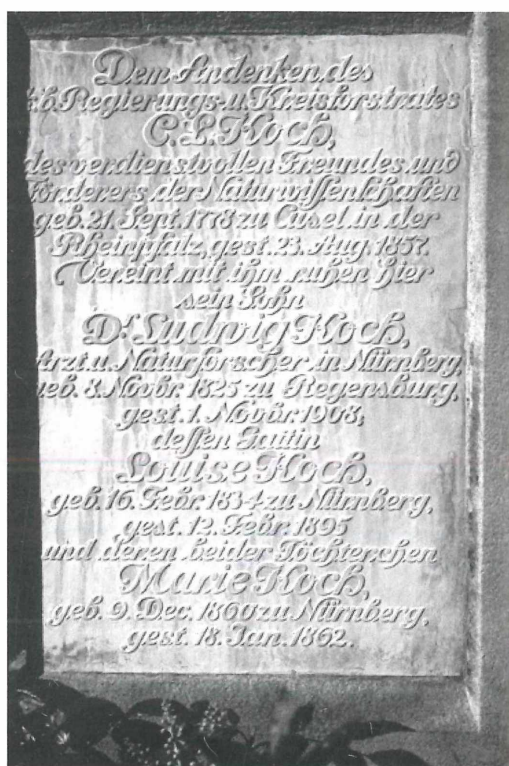 Dem Andenken des
k.b. Regierungs- u. Kreisforstrates
C. L. Koch,
des verdienstvollen Freundes und
Förderers der Naturwiſſenſchaften
geb. 21. Sept. 1778 zu Cusel in der
Rheinpfalz, gest. 23. Aug. 1857.
Vereint mit ihm ruhen hier
sein Sohn
Dr. Ludwig Koch,
Arzt u. Naturforscher in Nürnberg,
geb. 8. Novbr. 1825 zu Regensburg,
gest. 1. Novbr. 1908,
deſſen Gattin
Louise Koch,
geb. 16. Febr. 1834 zu Nürnberg,
gest. 12. Febr. 1895
und deren beider Töchterchen
Marie Koch,
geb. 9. Dec. 1860 zu Nürnberg,
gest. 18. Jan. 1862.